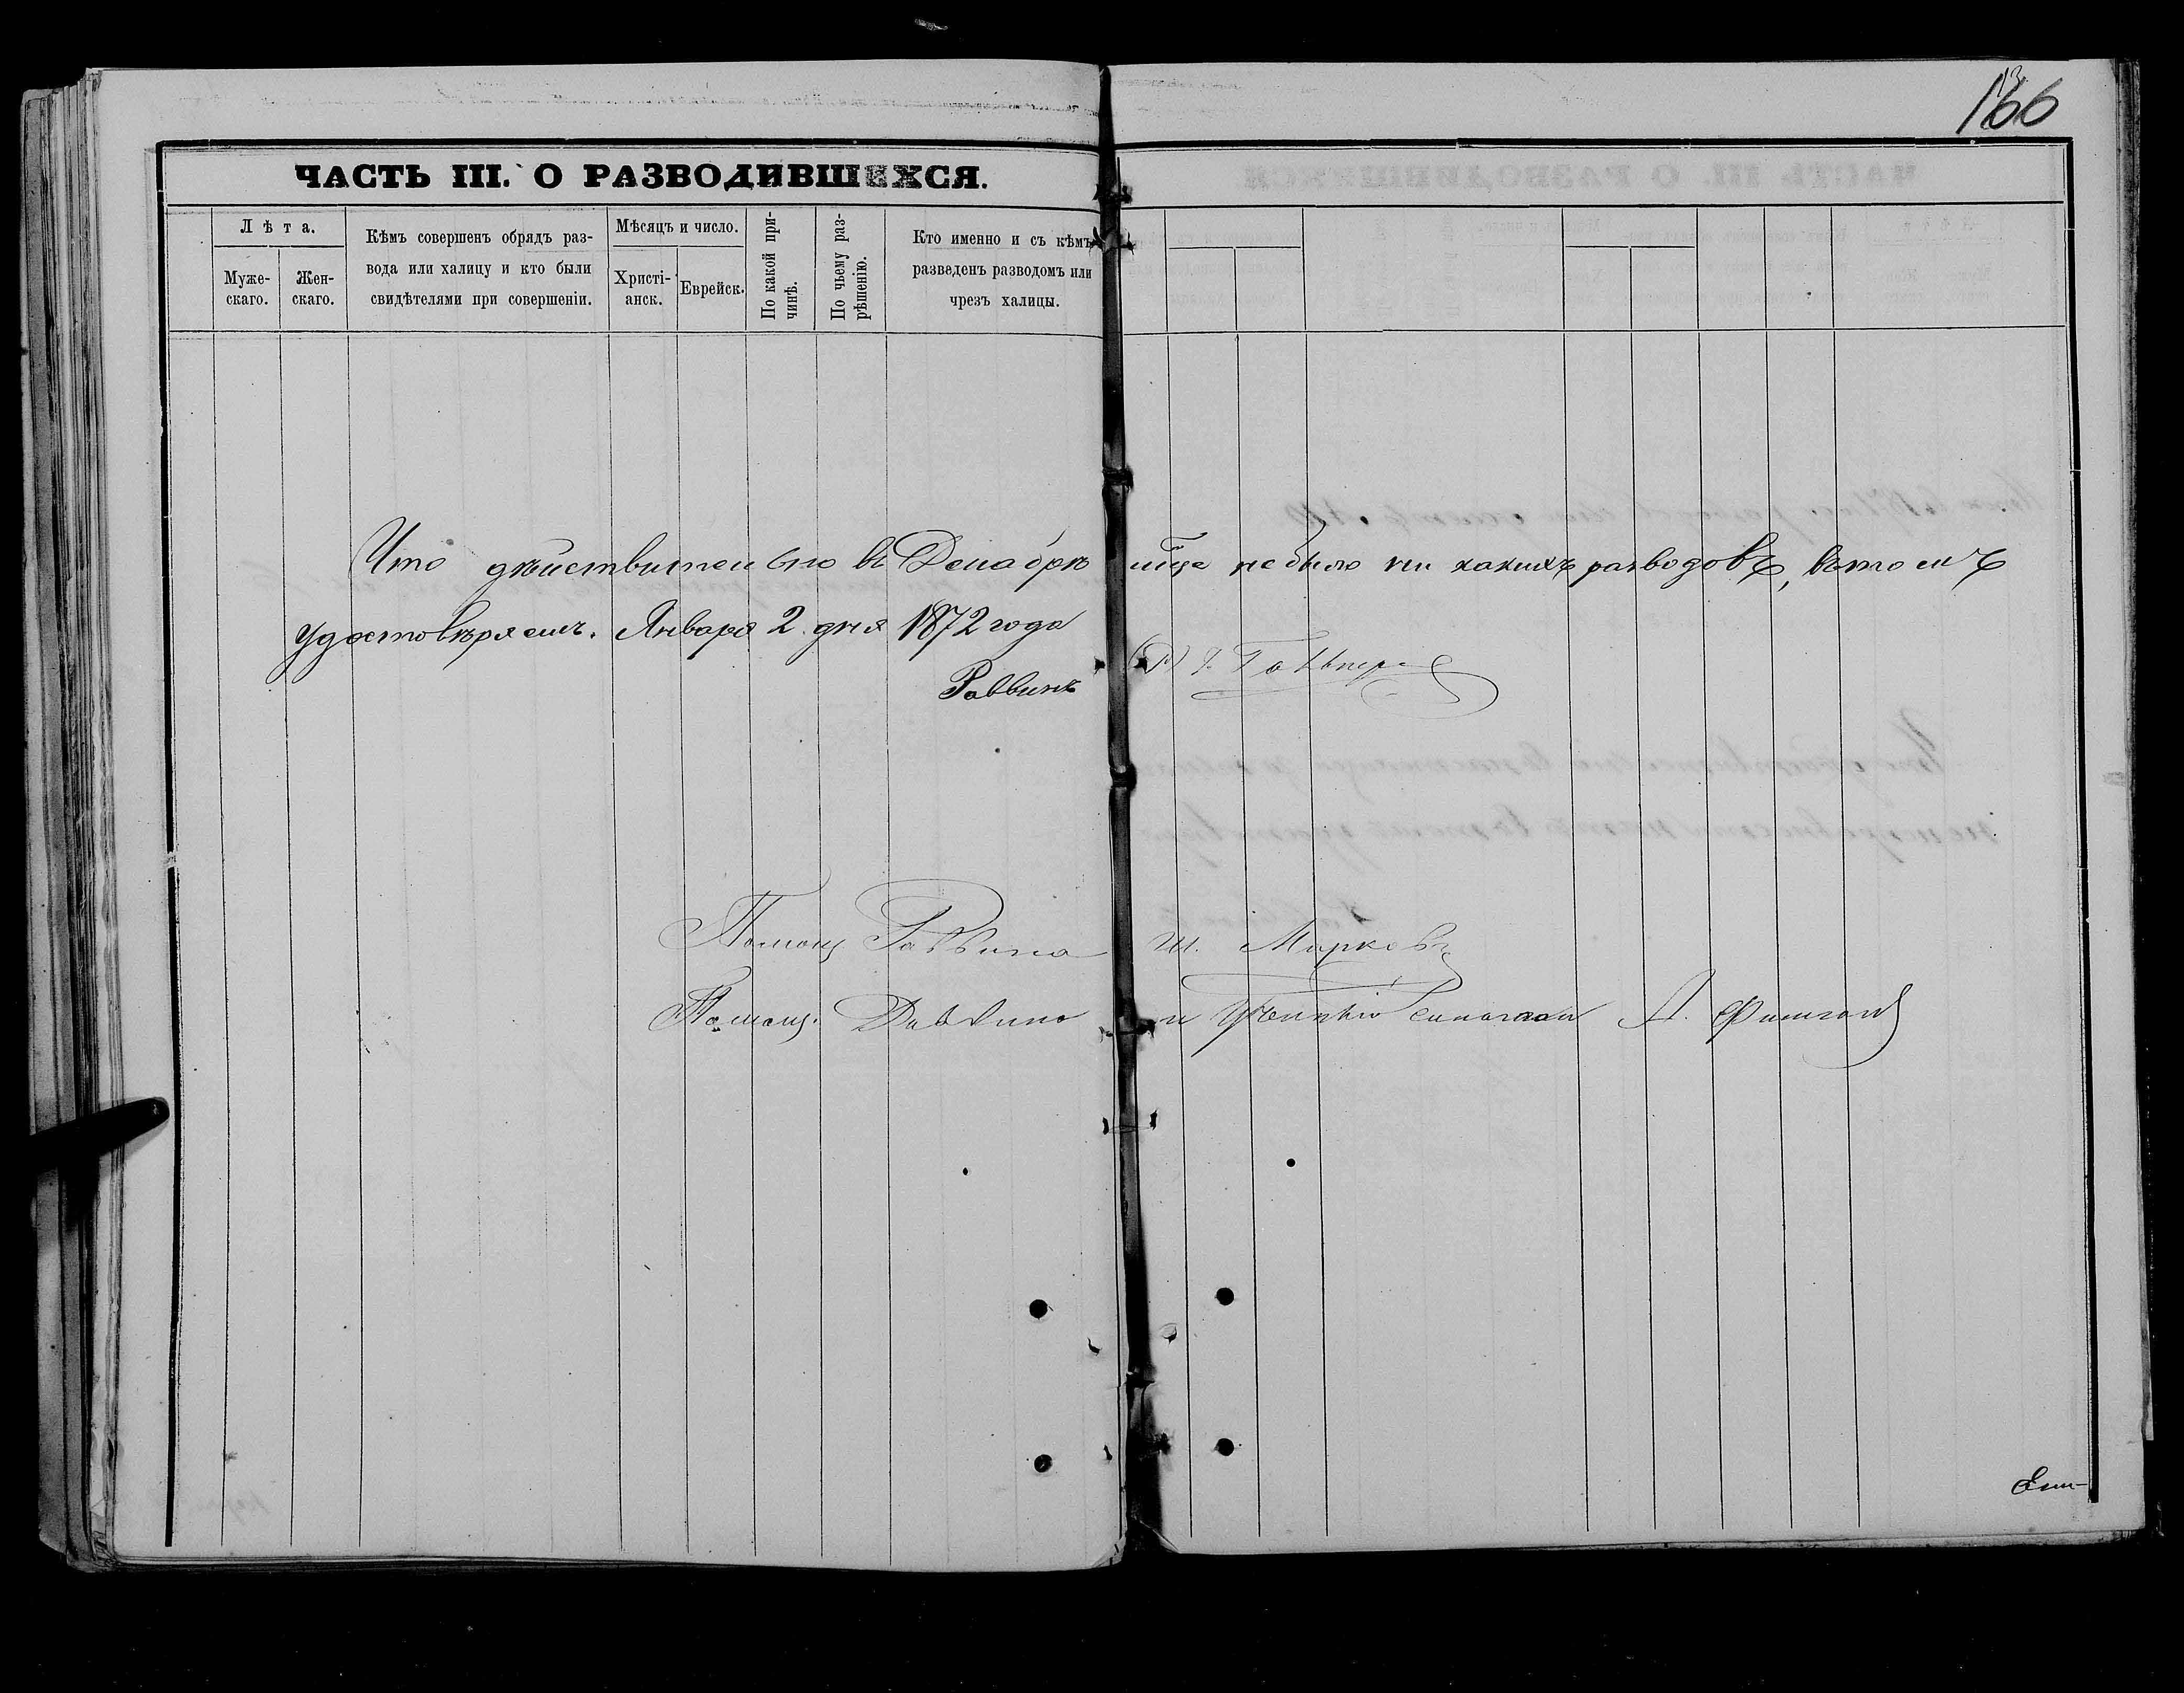 166
ЧАСТЬ III. О РАЗВОДИВШИХСЯ.
Лѣта.
Муже-
скаго.
Жен-
скаго.
Кѣмъ совершенъ обрядъ раз-
вода или халицу и кто были
свидѣтелями при совершеніи.
Мѣсяцъ и число.
Христі-
анск.
Еврейск.
По какой при-
чинѣ.
По чьему раз-
рѣшенію.
Кто именно и съ кѣмъ
разведенъ разводомъ или
чрезъ халицы.
Что дѣйствительно въ Декабрѣ м̃це не было ни какихъ разводовъ, въ томъ
удостовѣряемъ. Января 2 дня 1872 года
Раввинъ
Помощ Раввина Ш. Марковъ
Помощ. Раввина и Синагоги Л.